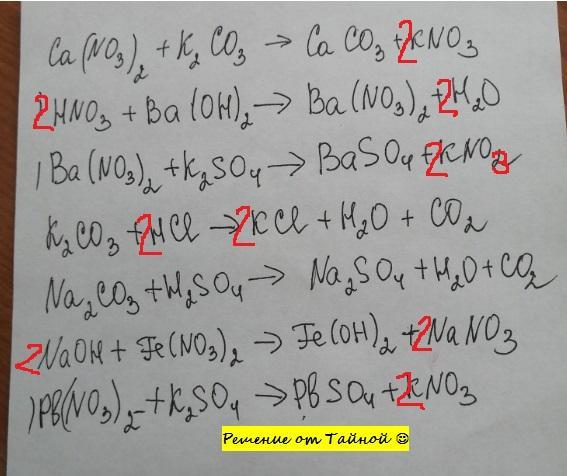 Ca(NO₃)₂ + K₂CO₃ → CaCO₃ + 2KNO₃
2HNO₃ + Ba(OH)₂ → Ba(NO₃)₂ + 2H₂O
) Ba(NO₃)₂ + K₂SO₄ → BaSO₄ + 2KNO₃
K₂CO₃ + 2HCl → 2KCl + H₂O + CO₂
Na₂CO₃ + H₂SO₄ → Na₂SO₄ + H₂O + CO₂
2NaOH + Fe(NO₃)₂ → Fe(OH)₂ + 2NaNO₃
) Pb(NO₃)₂ + K₂SO₄ → PbSO₄ + 2KNO₃
Решение от Тайной ☺